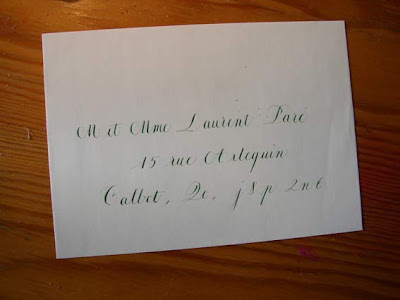 M et Mme Laurent Paré
15 rue Arlequin
Calbet, Qc, j8p 2n6